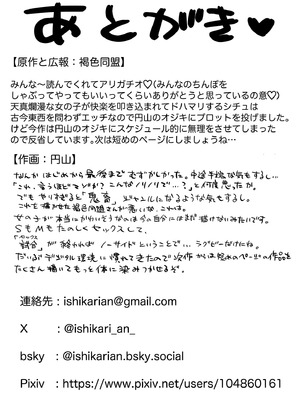 あとがき♥
【原作と広報：褐色同盟】
みんな～読んでくれてアリガチオ♡(みんなのちんぽを
しゃぶってやってもいいってくらいありがとうと思っているの意♡)
天真爛漫な女の子が快楽を叩き込まれてドハマリするシチュは
古今東西を問わずエッチなので円山のオジキにプロットを投げました。
けど今作は円山のオジキにスケジュール的に無理をさせてしまった
ので反省しています。次は短めのページにしましょうね…
【作画：円山】
なんかはじめから最後までむずかしかった。中途半端な気もするし…
「これ、言うほどエッチか？こんなノリノリで…？」と何度思ったか。
でもやりすぎると「悪畜」ジャンルになるような気もするし。
女の子が本当にかわいそうなのは今の自分にはまだ描けないみたいです。
SもMもたのしくセックスして、
「試合」が終わればノーサイドということで…ラグビーだけにね。
だいぶデジタル環境に慣れてきたので次作からは短めのページの作品を
たくさん描いてもっと体に染みつかせるぞ。
連絡先：ishikarian@gmail.com
X ：@ishikari_an_
bsky ：@ishikarian.bsky.social
Pixiv ：https://www.pixiv.net/users/104860161